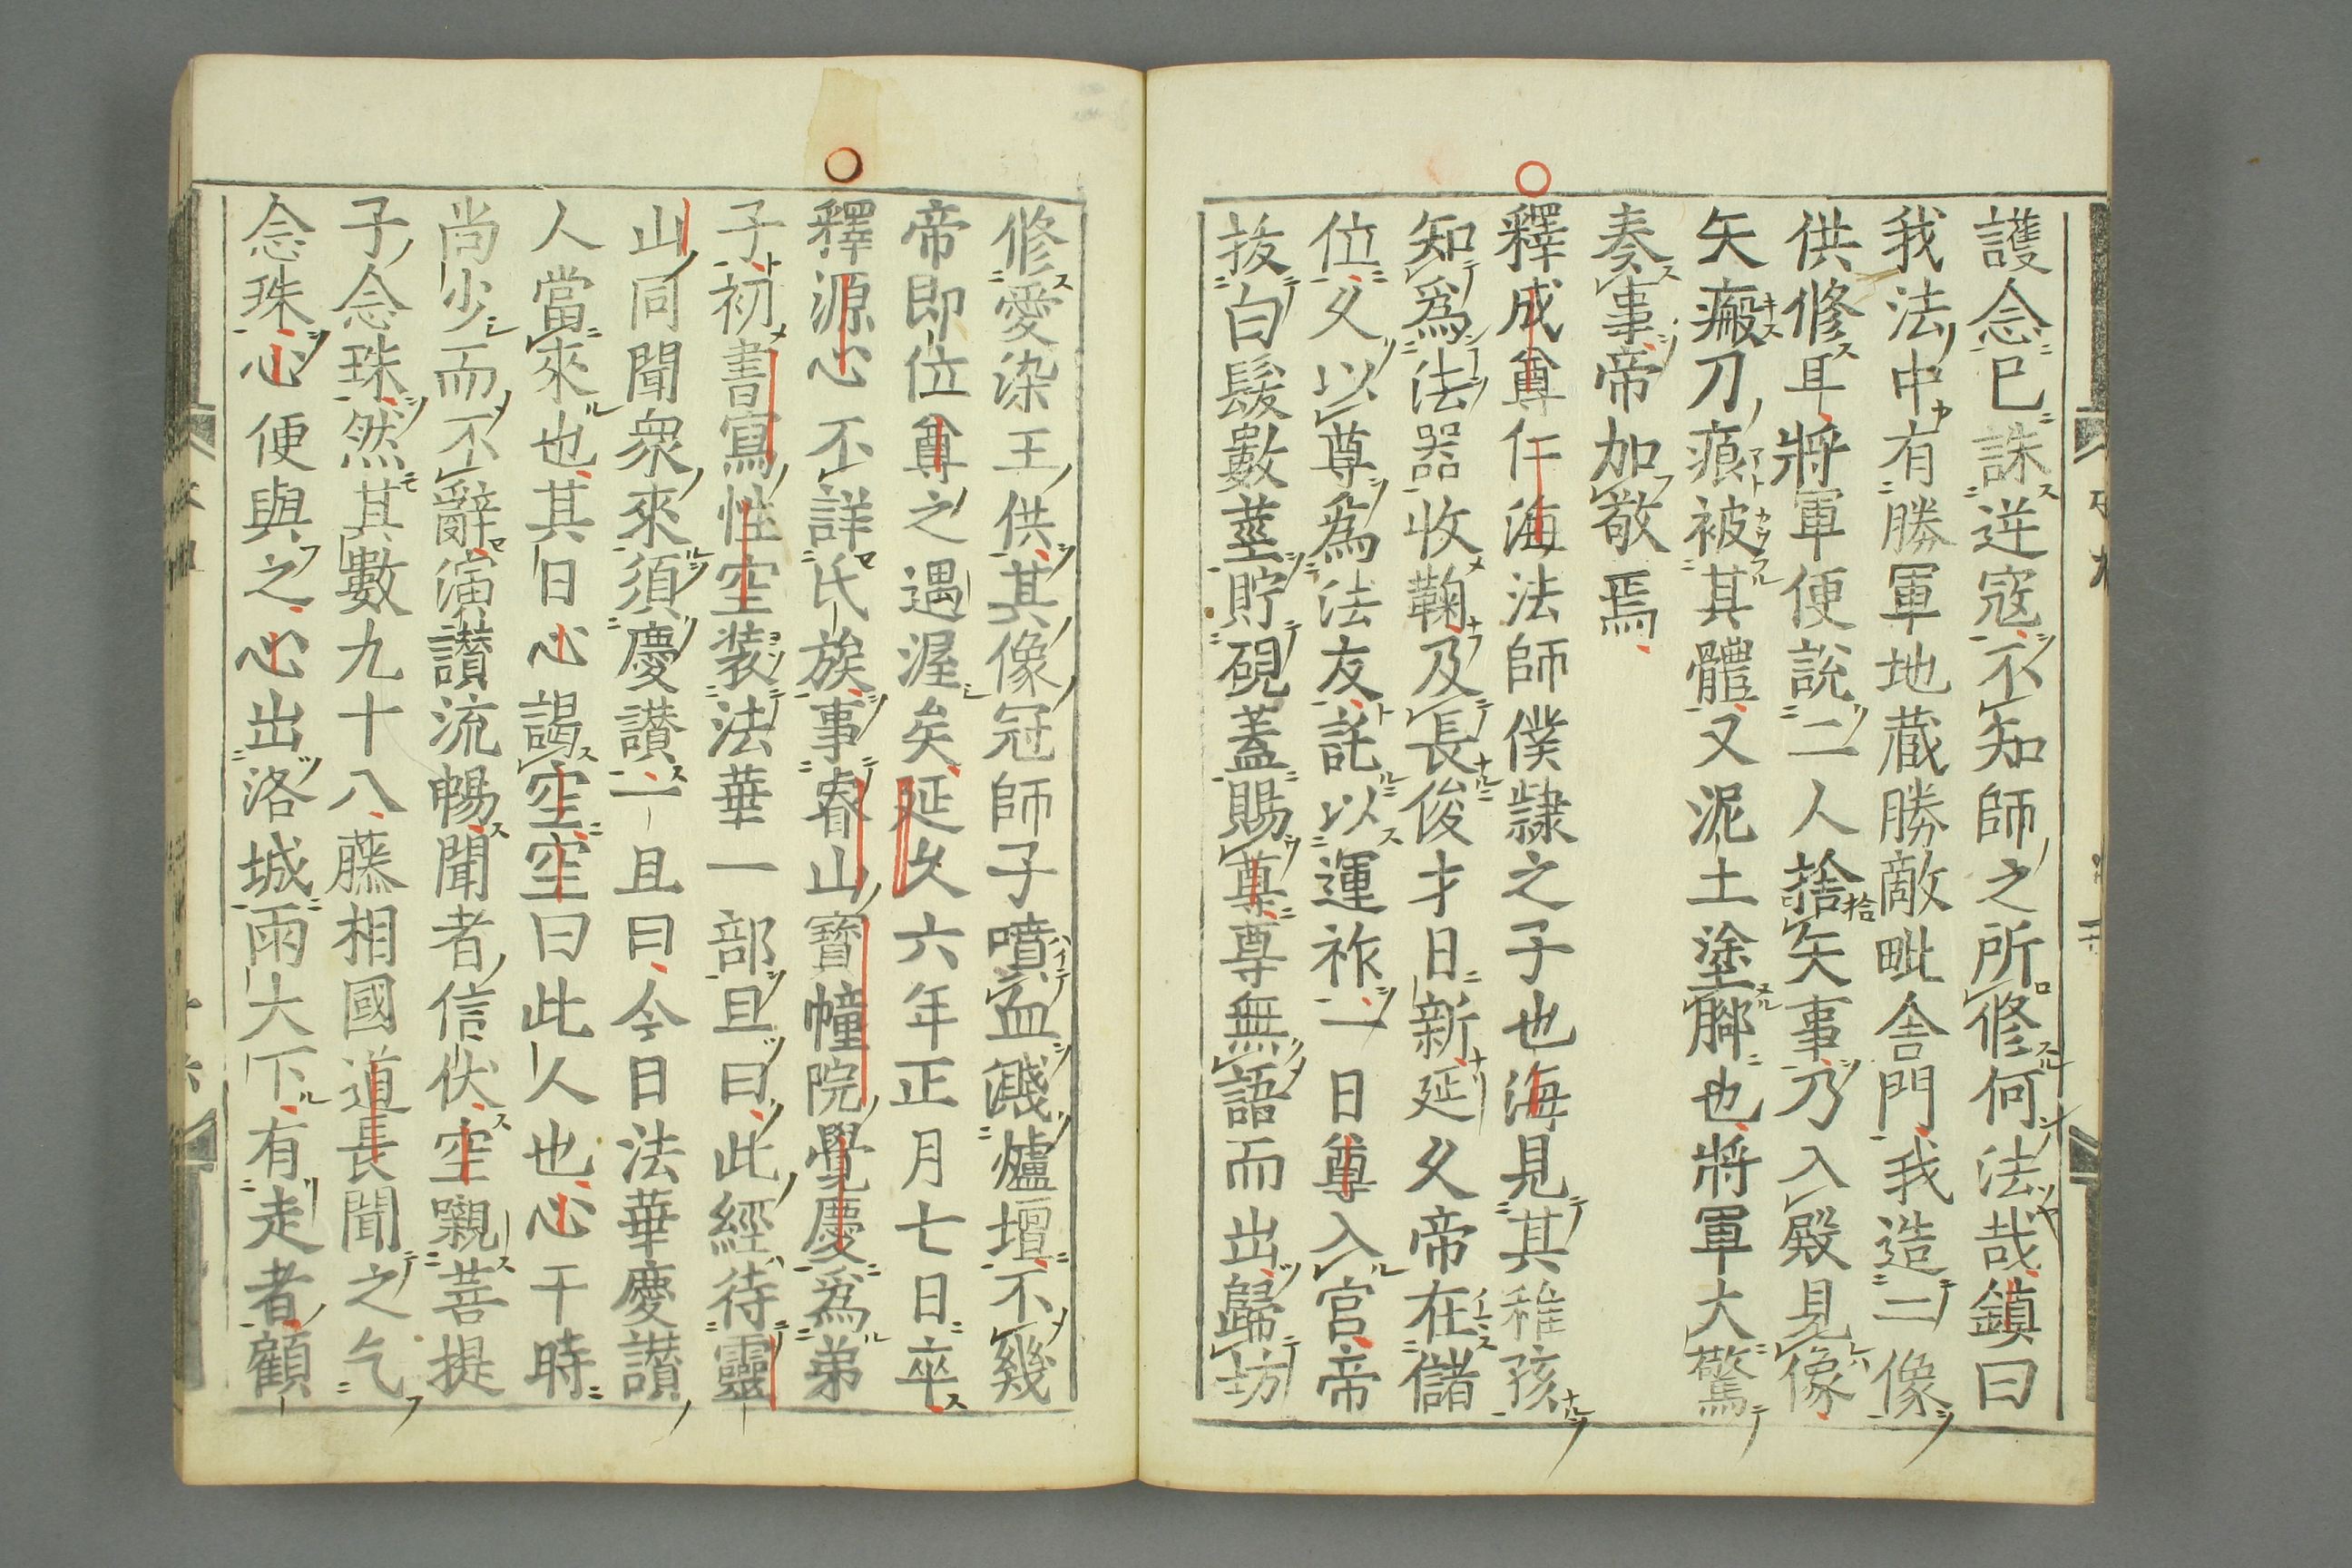 護念已誅逆寇不知師之所修何法哉鎮曰
我法中有勝軍地蔵勝敵毗舍門我造二像
供修耳將軍便說二人捨矢事乃入殿見像
矢瘢刀痕被其體又泥土塗脚也將軍大驚
奏事帝加敬焉
釋成尊仁海法師僕隷之子也海見其稚孩
知爲法器收鞠及長俊才日新延久帝在儲
位久以尊爲法友託以運祚一日尊入宮帝
拔白髮數莖貯硯蓋賜尊尊無語而出歸坊
修愛染王供其像冠師子噴血濺爐壇不幾
帝即位尊之遇渥矣延久六年正月七日卒
釋源心不詳氏族事睿山寶幢院覺慶爲弟
子初書寫性空装法華一部且曰此經待靈
山同聞衆來須慶讃一且曰今日法華慶讃
人當來也其日心謁空空曰此人也心干時
尚少而不辭演讃流暢聞者信伏空嚫菩提
子念珠然其數九十八藤相國道長聞之乞
念珠心便與之心出洛城雨大下有走者顧